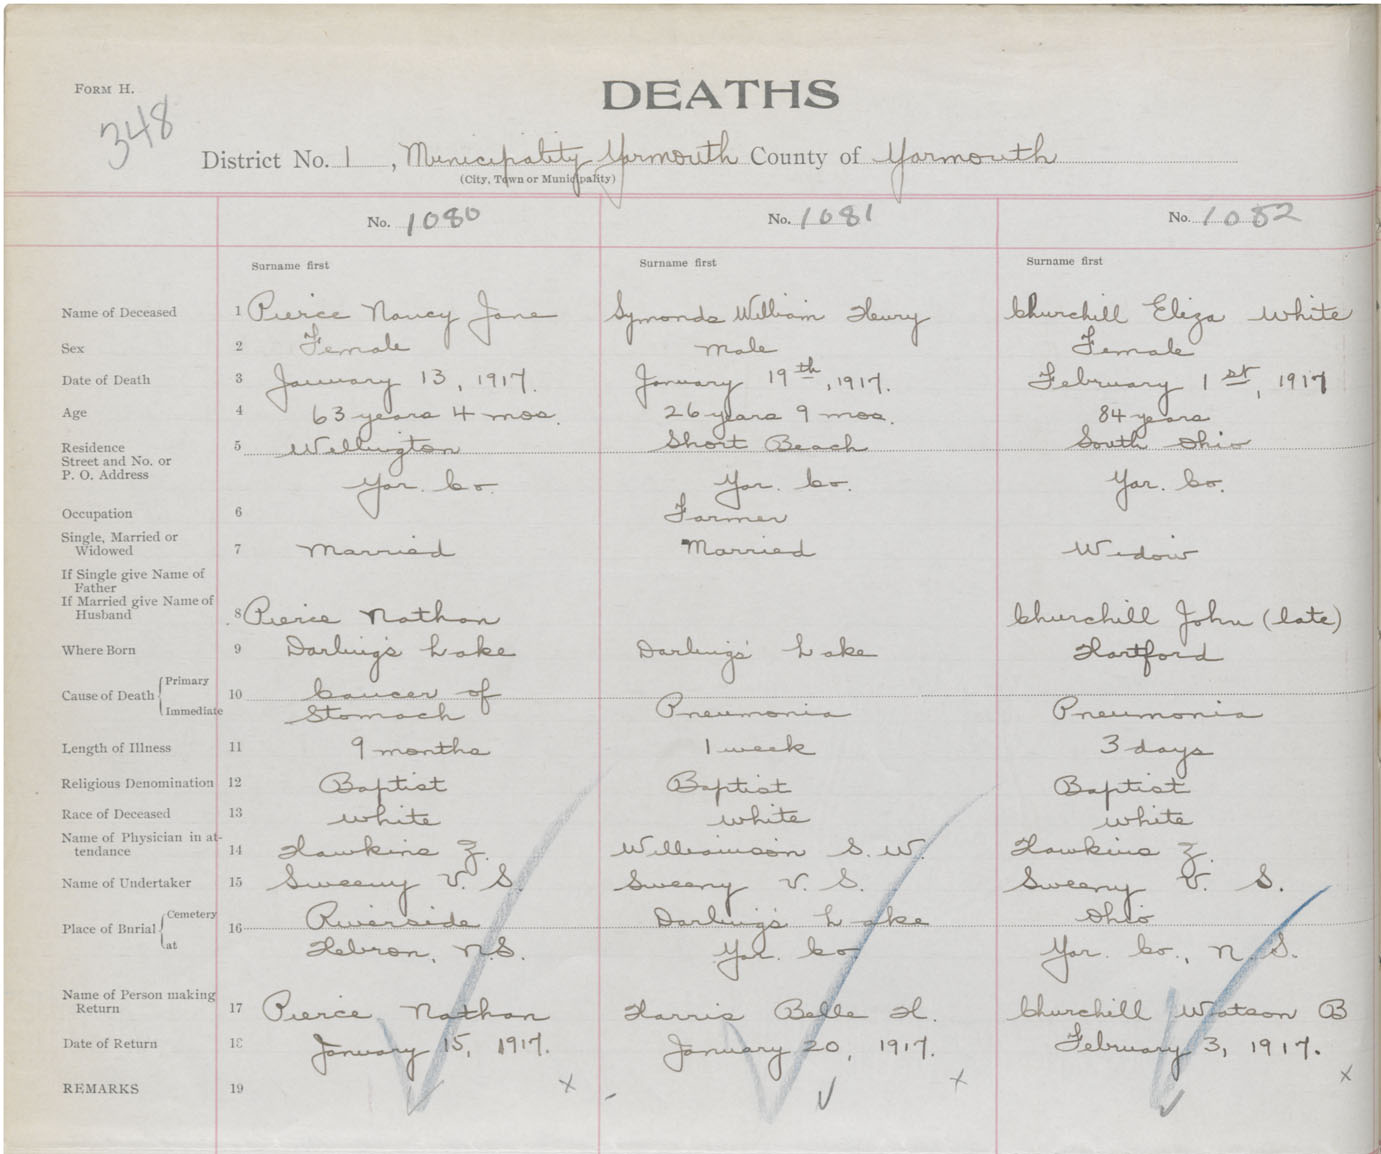 FORM H.
DEATHS
348
District No. 1, Municipality Yarmouth County of Yarmouth
(City, Town or Municipality)
No. 1080 No. 1081 No. 1082
Surname first Surname first Surname first
Name of Deceased 1 Pierce Nancy Jane Symonds William Henry Churchill Eliza White
Sex 2 Female Male Female
Date of Death 3 January 13, 1917. January 19th, 1917. February 1st, 1917
Age 4 63 years 4 mos. 26 years 9 mos. 84 years
Residence 5 Wellington Short Beach South Ohio
Street and No. or
P. O. Address Yar. Co. Yar. Co. Yar. Co.
Occupation 6 Farmer
Single, Married or
Widowed 7 Married Married Widow
If Single give Name of
Father
If Married give Name of
Husband 8 Pierce Nathan Churchill John (late)
Where Born 9 Darling's Lake Darling's Lake Hartford
Cause of Death Primary 10 Cancer of
Immediate Stomach Pneumonia Pneumonia
Length of Illness 11 9 months 1 week 3 days
Religious Denomination 12 Baptist Baptist Baptist
Race of Deceased 13 White White White
Name of Physician in at-
tendance 14 Hawkins Z. Williamson S. W. Hawkins Z.
Name of Undertaker 15 Sweeny V. S. Sweeny V. S. Sweeny V. S.
Place of Burial Cemetery 16 Riverside Darling's Lake Ohio
at Hebron, N.S. Yar. Co. Yar. Co., N. S.
Name of Person making
Return 17 Pierce Nathan Harris Belle H. Churchill Watson B
Date of Return 18 January 15, 1917. January 20, 1917. February 3, 1917.
REMARKS 19 x x x